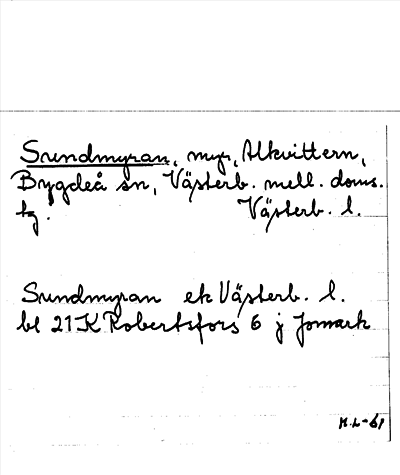 Sundmyran, myr, Alkvittern,
Bygdeå sn, Västerb. mell. doms.
tg. Västerb. l.
Sundmyran ek Västerb. l.
bl 21 K Robertsfors 6 j Jomark
M.L-61